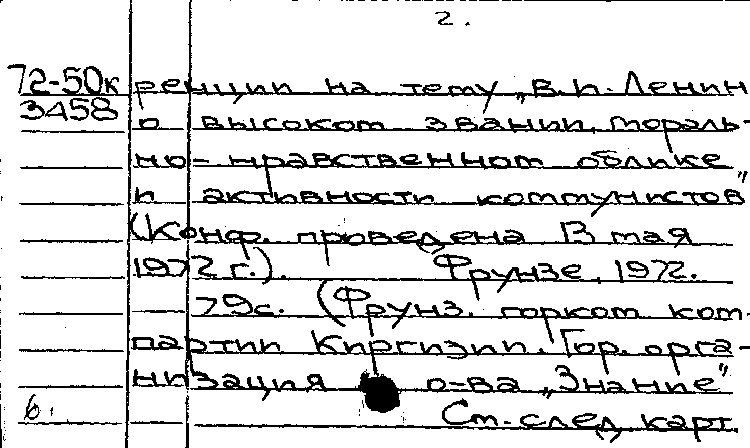 2.
72-50к ренции на тему „В.И. Ленин
3458 о высоком звании, мораль-
но-нравственном облике
и активности коммунистов"
(Конф. проведена 13 мая
1972 г.). Фрунзе, 1972.
79с. (Фрунз. горком ком-
партии Киргизии. Гор. орга-
низация о-ва „Знание"
6. См. след. карт.